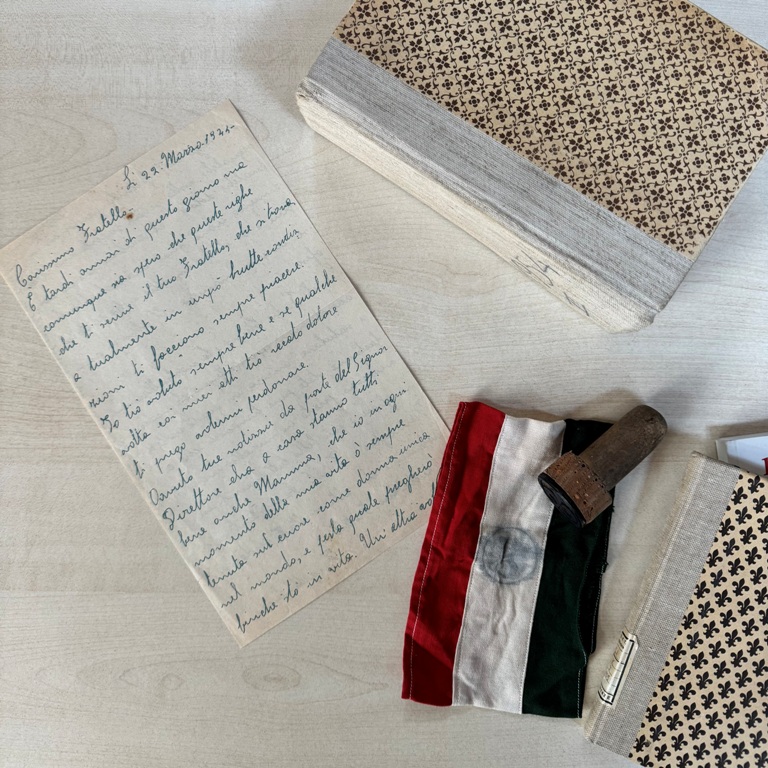 Lì 22. Marzo. 1945-
Carissimo Fratello
È tardi ormai di questo giorno ma
comunque sia spero che queste righe
che ti scrive il tuo Fratello, che si trova
attualmente in brutte condiz
zioni ti facciano sempre piacere.
Io tiò voluto sempre bene e se qualche
volta coi miei atti tiò recato dolore
ti prego volermi perdonare.
Avuto tue notizzie da parte del Signor
Direttore che a casa stanno tutti
bene anche Mamma, che io in ogni
momento della mia vita ò sempre
tenuta sul cuore come donna unica
nel mondo, e per la quale pregherò
finche sto in vita. Un altra